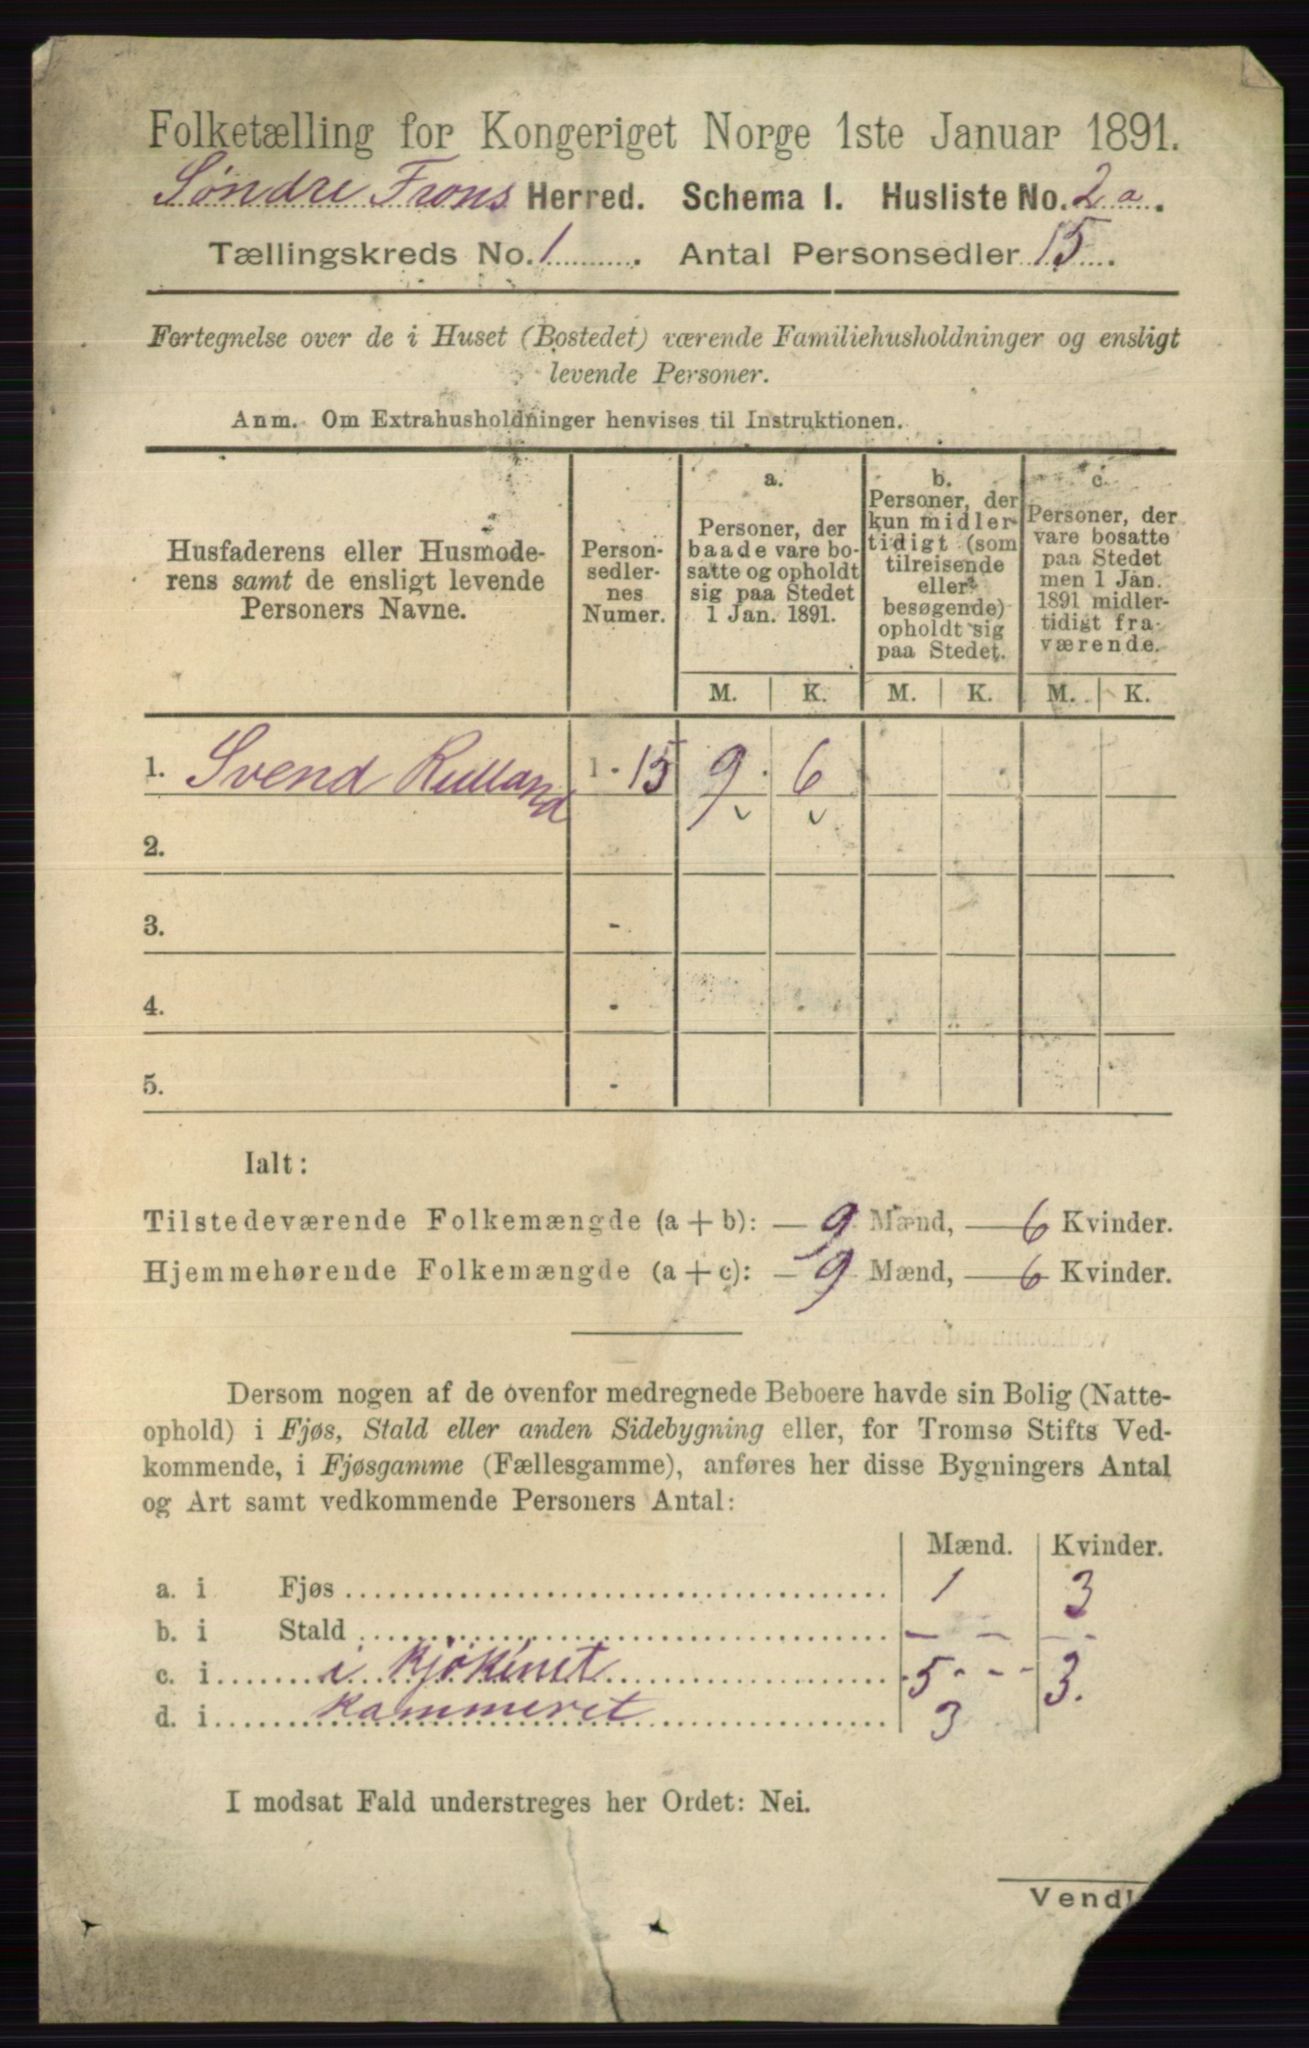 Folketælling for Kongeriget Norge 1ste Januar 1891.
Søndre Frons Herred. Schema I. Husliste No. 2 a.
Tællingskreds No. 1. Antal Personsedler 15.
Fortegnelse over de i Huset (Bostedet) værende Familiehusholdninger og ensligt
levende Personer.
Anm. Om Extrahusholdninger henvises til Instruktionen.
Husfaderens eller Husmode-
rens samt de ensligt levende
Personers Navne.
Person-
sedler-
nes
Numer.
a.
Personer, der
baade vare bo-
satte og opholdt
sig paa Stedet
1 Jan. 1891.
b.
Personer, der
kun midler-
tidigt (som
tilreisende
eller
besøgende)
opholdt sig
paa Stedet.
c.
Personer, der
vare bosatte
paa Stedet
men 1 Jan.
1891 midler-
tidigt fra-
værende.
M. K. M. K. M. K.
1. Svend Rulland 1 - 15 9 6
2.
3. -
4. -
5. -
Ialt:
Tilstedeværende Folkemængde (a + b): — 9 Mænd, — 6 Kvinder.
Hjemmehørende Folkemængde (a + c): — 9 Mænd, — 6 Kvinder.
Dersom nogen af de ovenfor medregnede Beboere havde sin Bolig (Natte-
ophold) i Fjøs, Stald eller anden Sidebygning eller, for Tromsø Stifts Ved-
kommende, i Fjøsgamme (Fællesgamme), anføres her disse Bygningers Antal
og Art samt vedkommende Personers Antal:
Mænd. Kvinder.
a. i Fjøs 1 3
b. i Stald - - - -
c. i i Kjøkenet 5 - - - 3.
d. i Kammeret 3
I modsat Fald understreges her Ordet: Nei.
Vend!